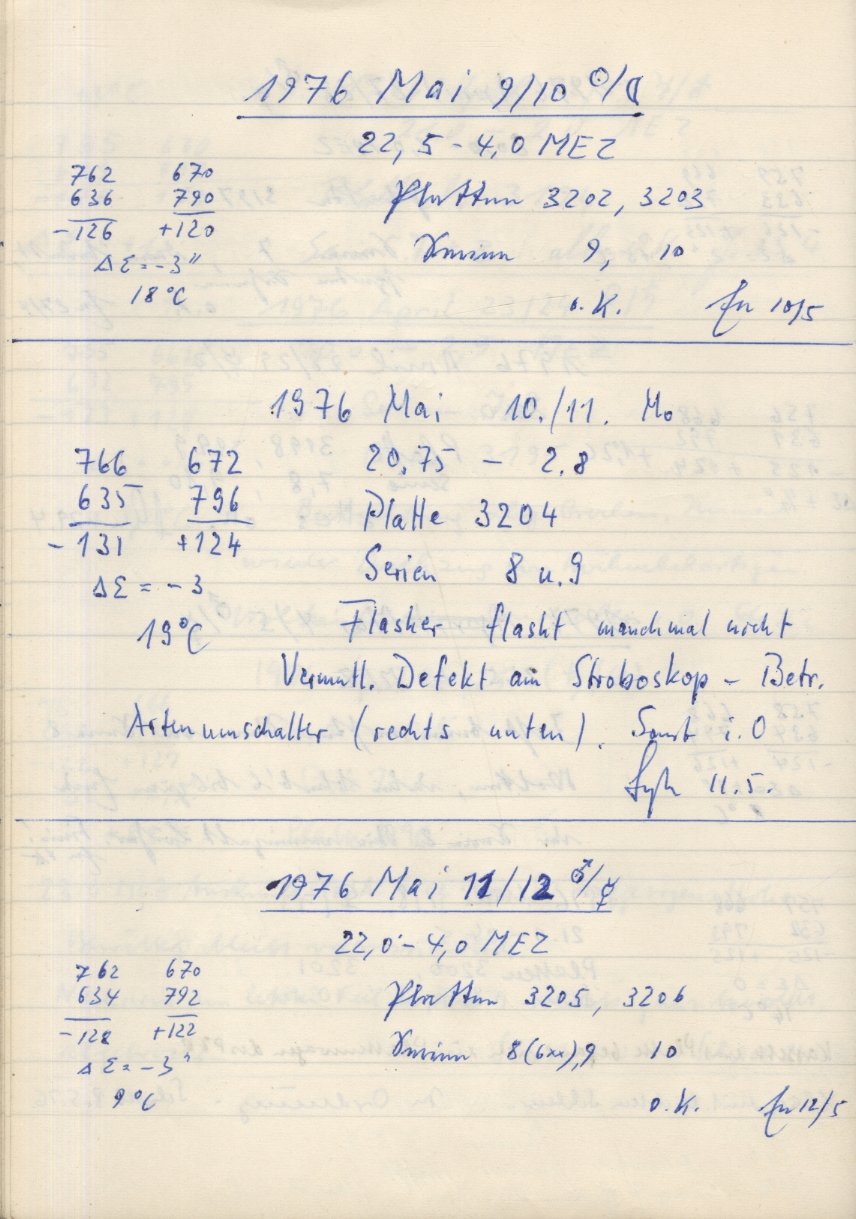 1976 Mai 9/10 ☉/☾
22,5 - 4,0 MEZ
762 670 Platten 3202, 3203
636 790
-126 +120 Serien 9, 10
ΔΣ = -3"
18°C o.K. 10/5
1976 Mai 10./11. Mo
766 672 20,75 - 2,8
635 796 Platte 3204
-131 +124
ΔΣ = -3 Serien 8 u. 9
19°C Flasher flasht manchmal nicht
Vermutl. Defekt am Stroboskop - Betr.
Artenumschalter (rechts unten). Sonst i.O
11.5.
1976 Mai 11/12 ♂/☿
22,0 - 4,0 MEZ
762 670 Platten 3205, 3206
634 792
-128 +122 Serien 8(6xx),9 10
ΔΣ = -3"
9°C o.K. 12/5